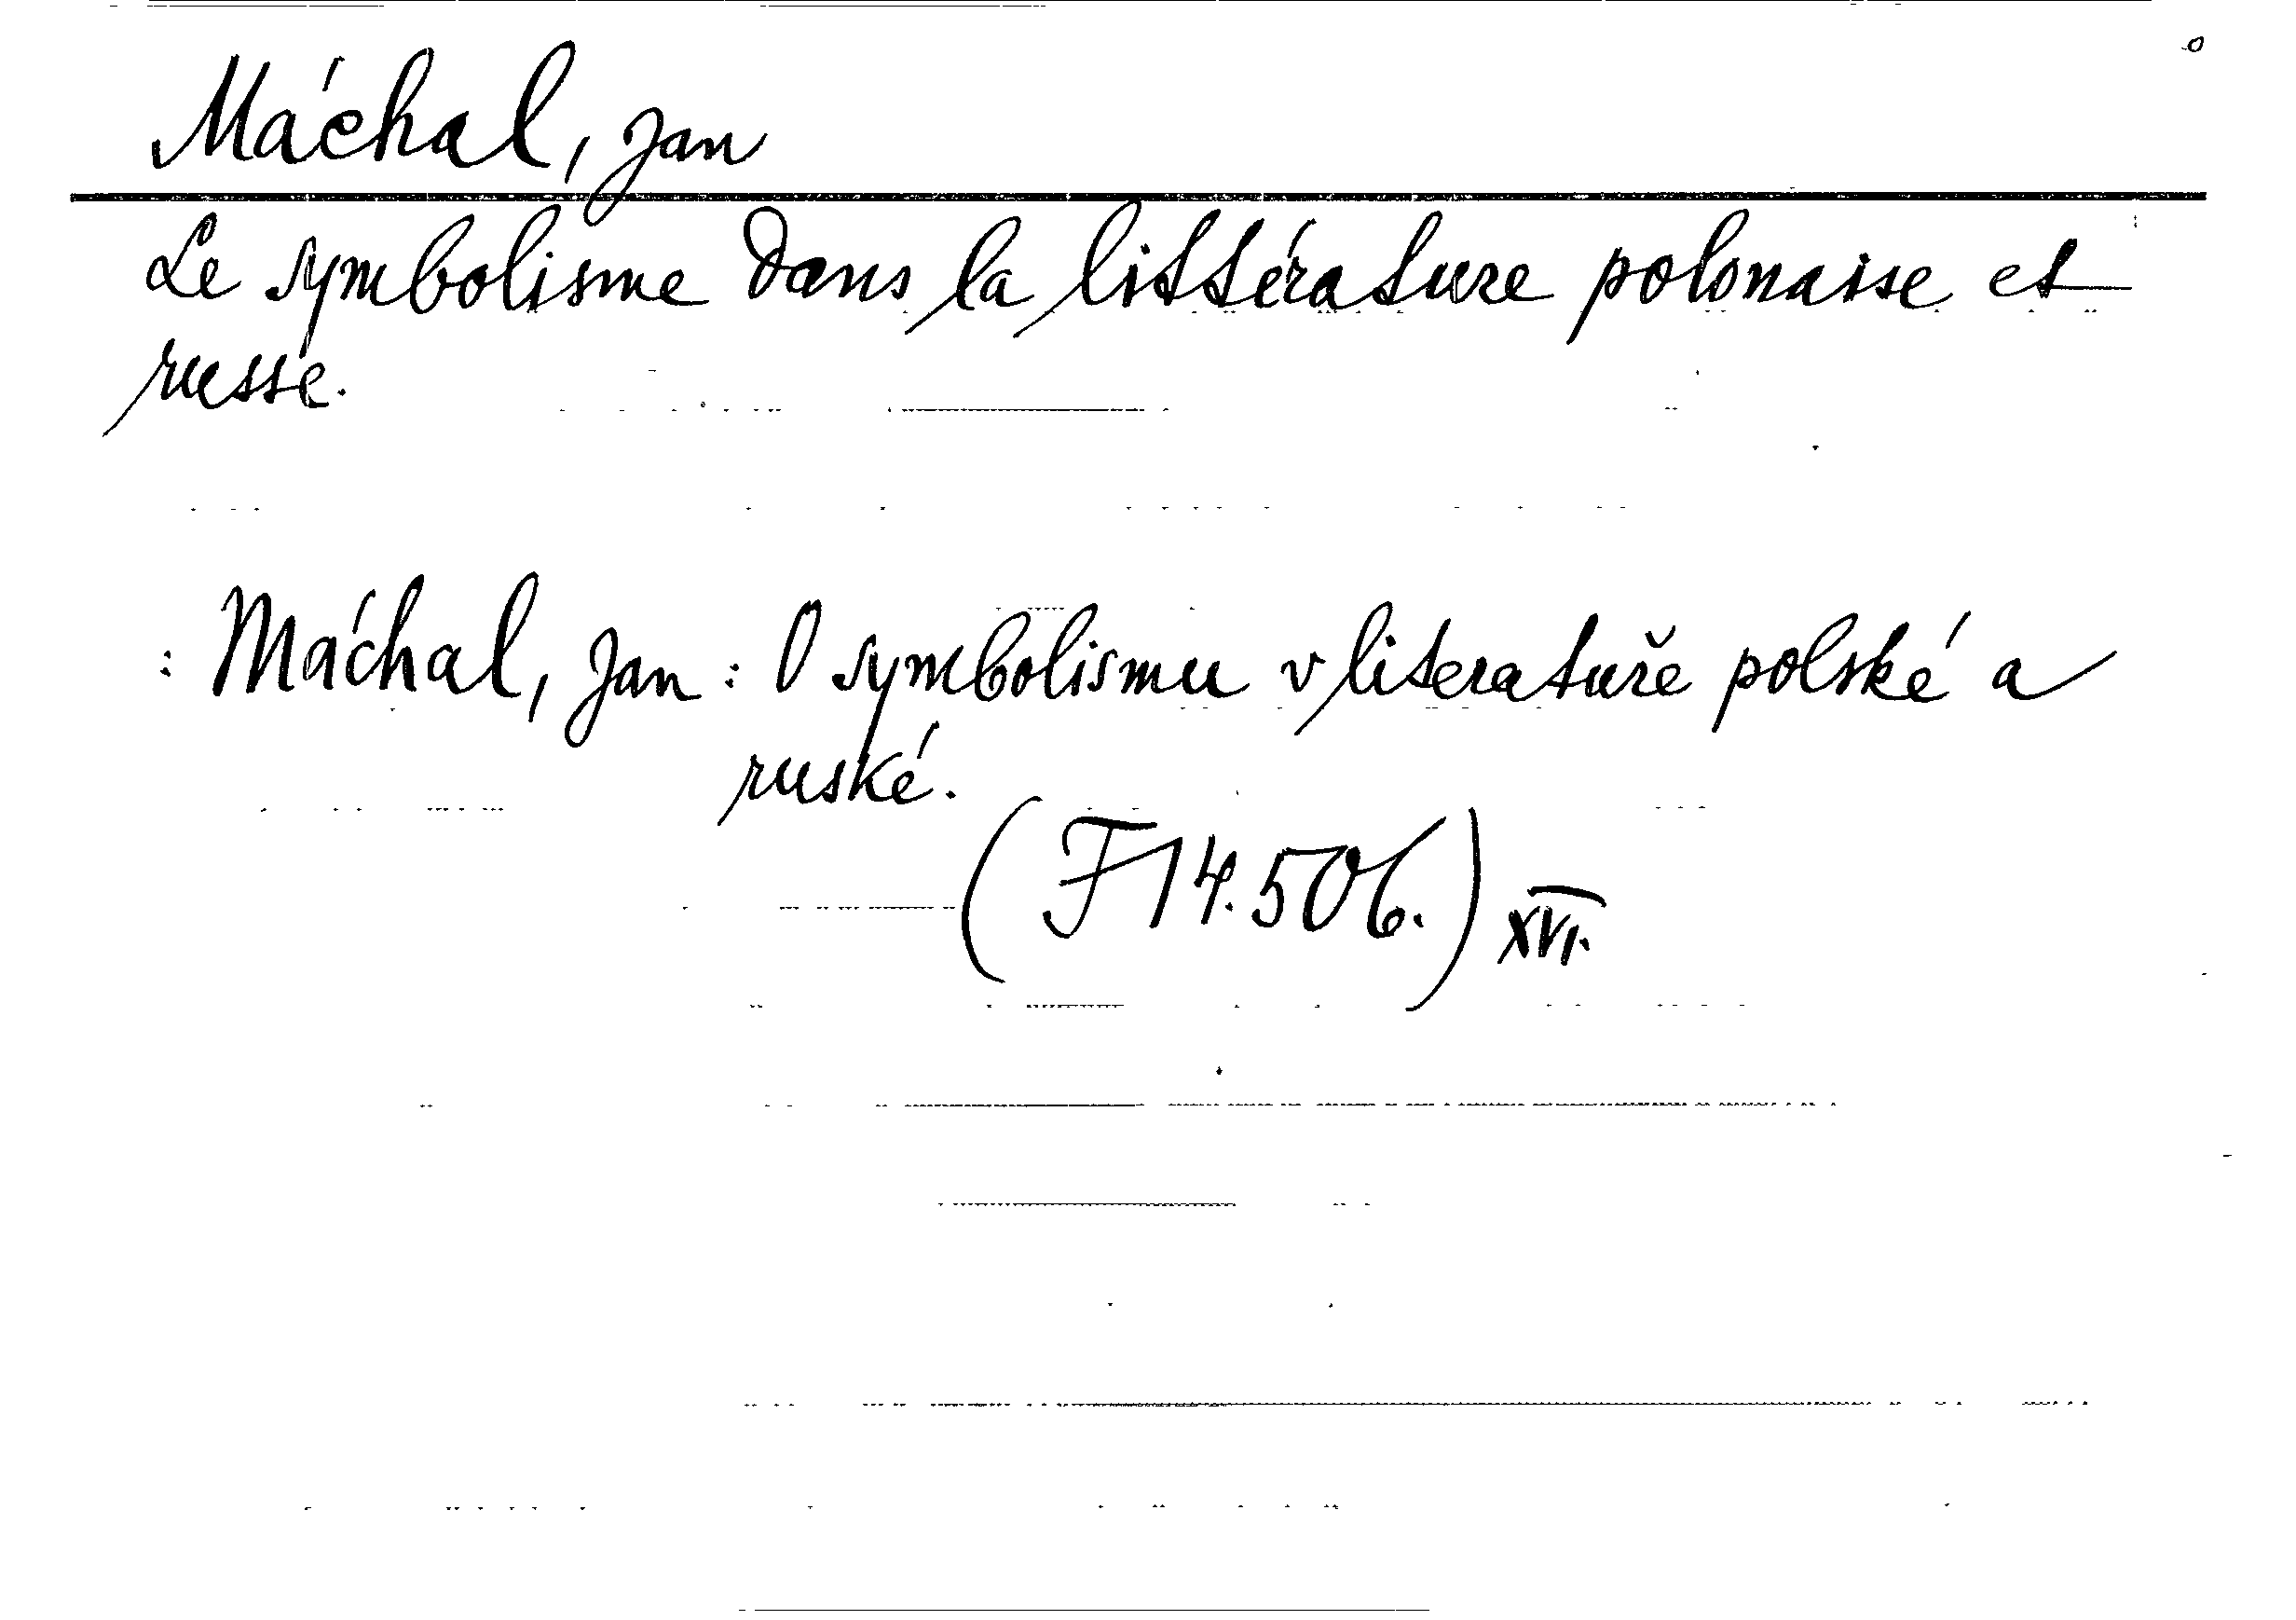 Máchal, Jan
Le symbolisme dans la littérature polonaise et
russe.
: Máchal, Jan : O symbolismu v literatuře polské a
ruské.
(F 14.506.) XVI.